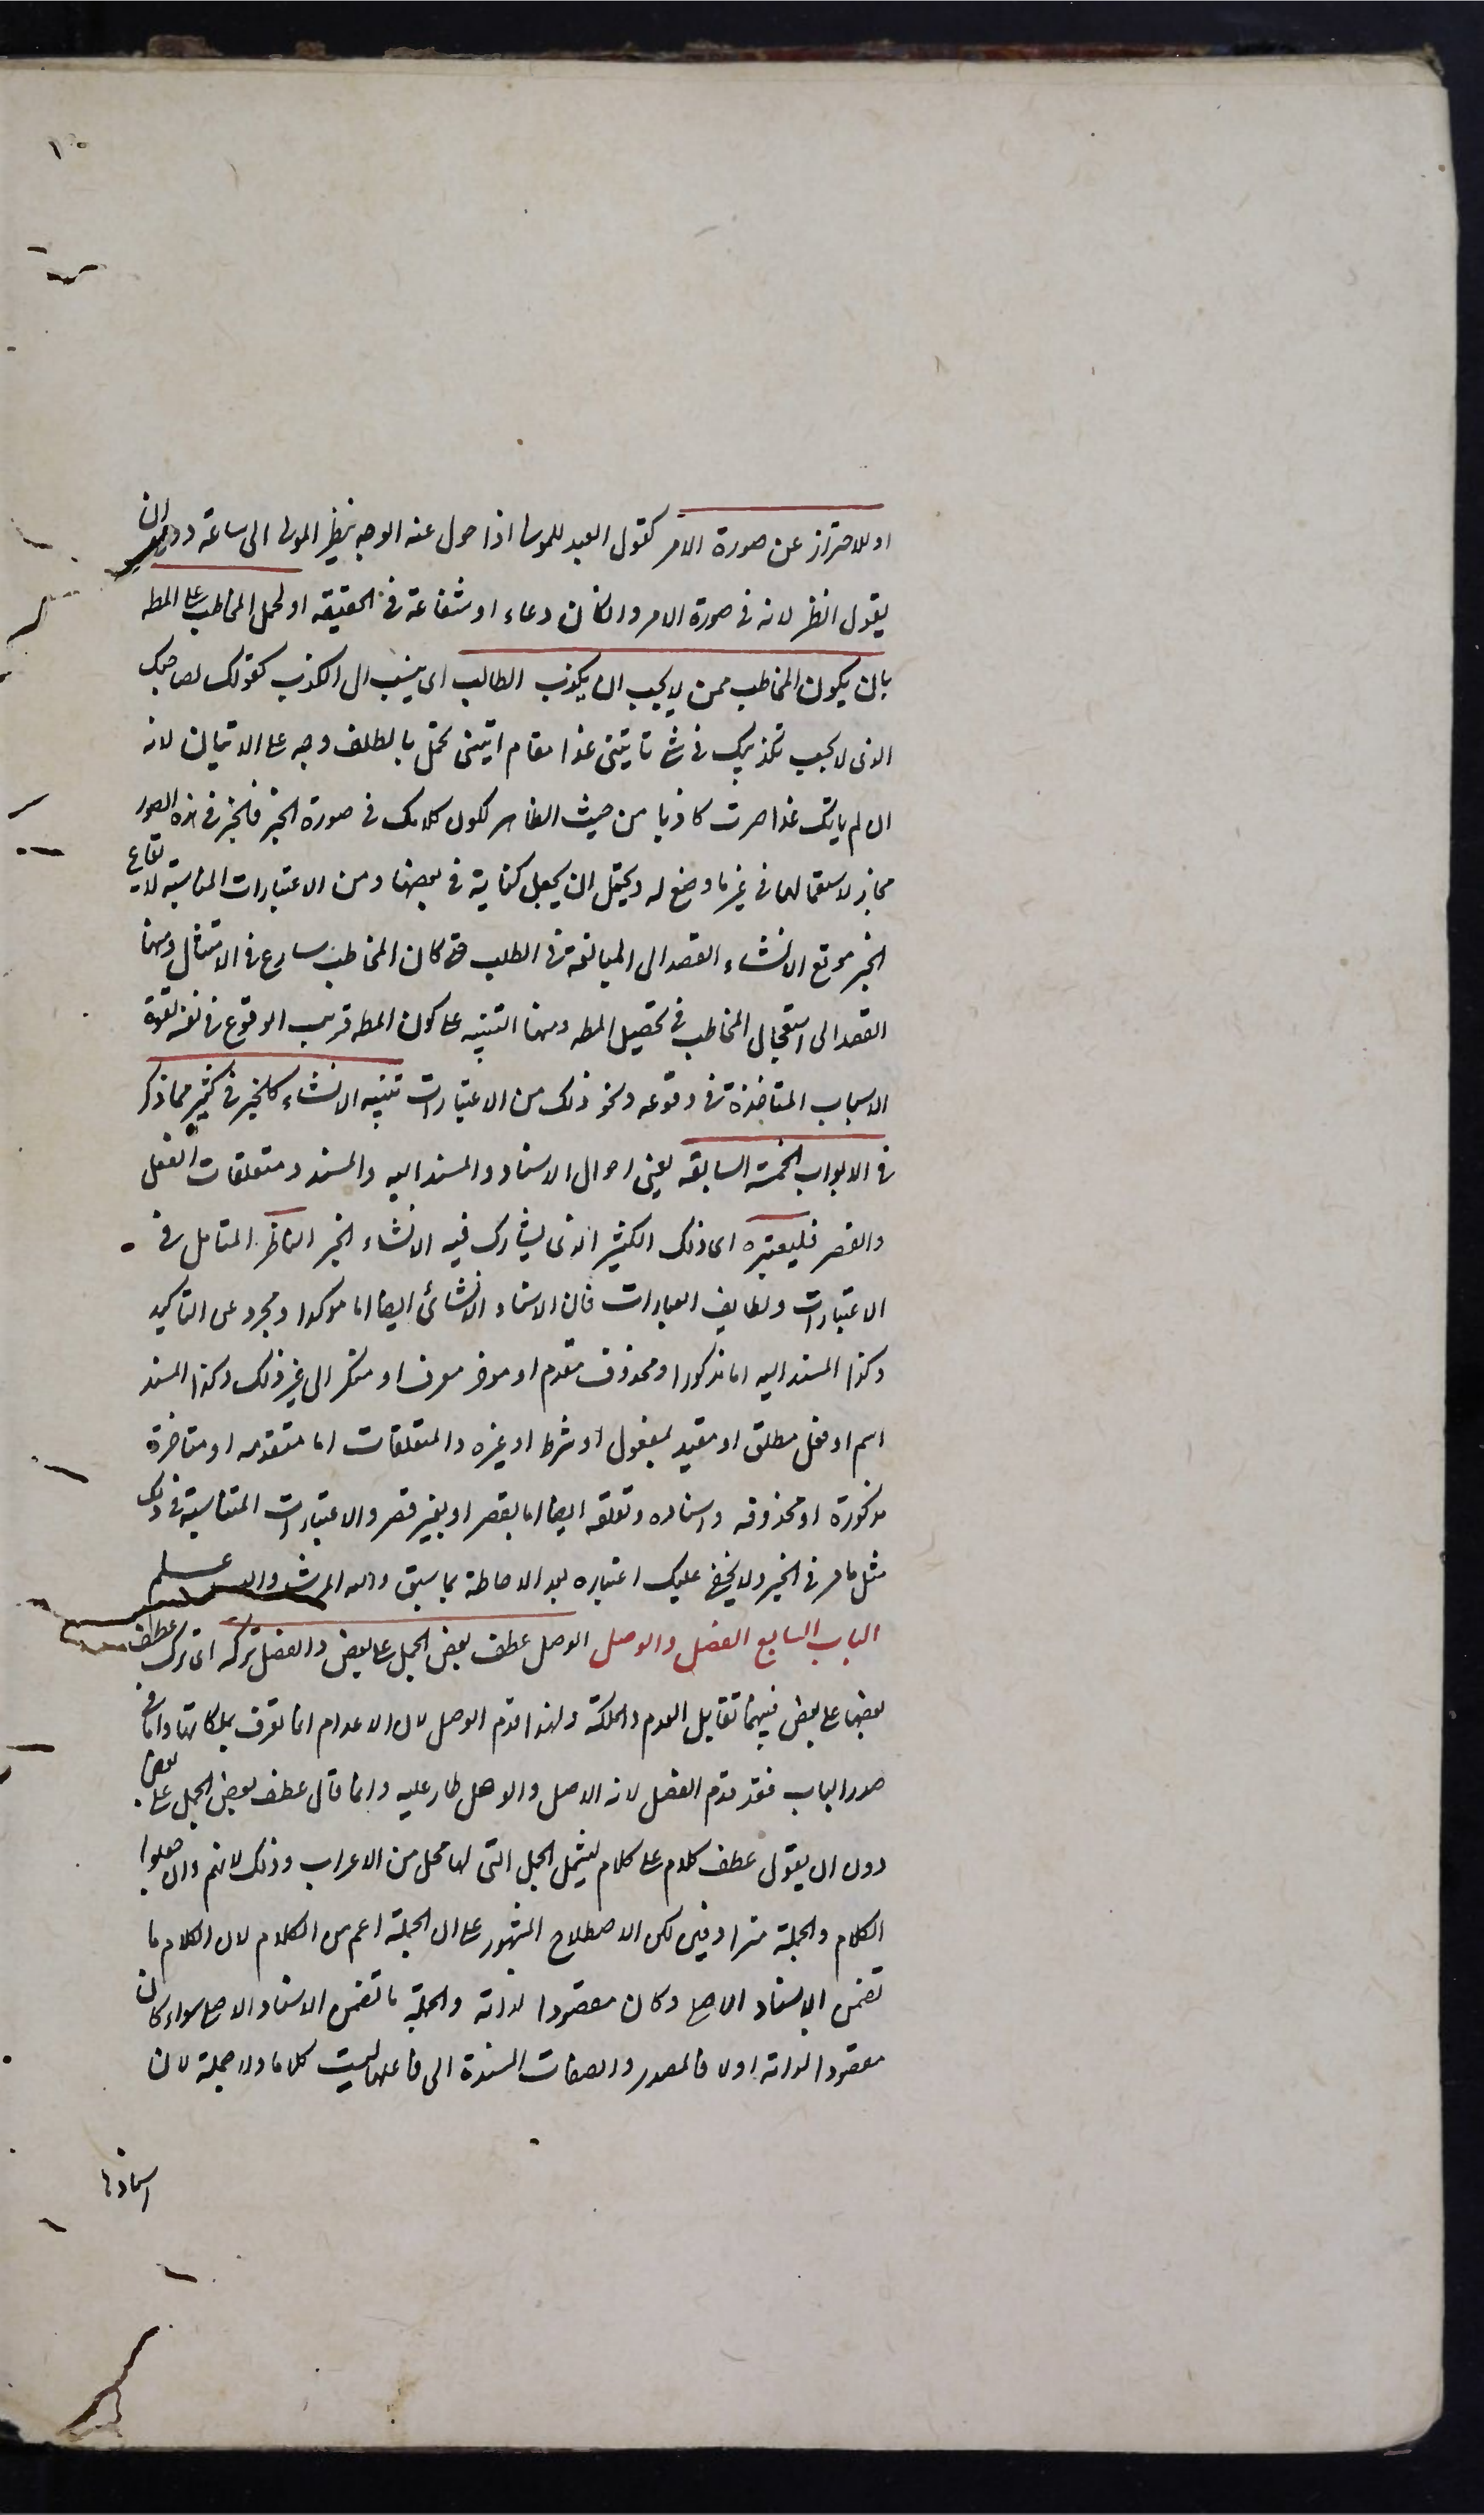 او للاحتراز عن صورة الامر كقول العبد للمولى اذا حول عنه الوجه ينظر المولى الى ساعة دون ان
يقول انظر لانه فى صورة الامر وان كان دعاء او شفاعة فى الحقيقه او لحمل المخاطب على المط
بان يكون المخاطب ممن لا يحب ان يكذب الطالب اى ينسب الى الكذب كقولك لصاحبك
الذى لا يحب تكذيبك فى شئ تاتينى غدا مقام ائتينى تحمل بالطف وجه على الاتيان لانه
ان لم ياتك غدا صرت كاذبا من حيث الظاهر لكون كلامك فى صورة الخبر فالخبر فى هذه الصور
مجاز لاستعمالها فى غير ما وضع له ويحتمل ان يجعل كناية فى بعضها ومن الاعتبارات المناسبة لايقاع
الخبر موقع الانشاء القصد الى المبالغة فى الطلب حتى كان المخاطب سارع فى الامتثال ومنها
القصد الى استعجال المخاطب فى تحصيل المط ومنها التنبيه على كون المط قريب الوقوع فى نفسه لقوة
الاسباب المتاخذة فى وقوعه ونحو ذلك من الاعتبارات تنبيه الانشاء كالخبر فى كثير مما ذكر
فى الابواب الخمسة السابقه يعنى احوال الاسناد والمسند اليه والمسند ومتعلقات الفعل
والقصر فليعتبره اى ذلك الكثير الذى يشارك فيه الانشاء الخبر الناظر المتامل فى
الاعتبارات ولطايف العبارات فان الاسناد الانشائى ايضا اما موكدا ومجرد عن التاكيد
وكذا المسند اليه اما مذكورا ومحذوف مقدم او موخر معرف او منكر الى غير ذلك وكذا المسند
اسم او فعل مطلق او مقيد بمفعول او شرط او غيره والمتعلقات اما متقدمه او متاخرة
مذكورة او محذوفه واسناده وتعلقه ايضا اما بقصر او بغير قصر والاعتبارات المتناسبة فى ذلك
مثل ما مر فى الخبر ولا يخفى عليك اعتباره بعد الاحاطة بما سبق والله المرشد والله علم
الباب السابع الفصل والوصل الوصل عطف بعض الجمل على بعض والفصل تركه اى ترك عطف
بعضها على بعض فبينهما تقابل العدم والملكة ولهذا قدم الوصل لان الاعدام انما تعرف بملكاتها واما فى
صدر الباب فقد قدم الفصل لانه الاصل والوصل طار عليه وانما قال عطف بعض الجمل على بعض
دون ان يقول عطف كلام على كلام ليشمل الجمل التى لها محل من الاعراب وذلك لانهم وان جعلوا
الكلام والجملة مترادفين لكن الاصطلاح المشهور على ان الجملة اعم من الكلام لان الكلام ما
تضمن الاسناد الاصلى وكان مقصودا لذاته والجملة ما تضمن الاسناد الاصلى سواء كان
مقصودا لذاته اولا فالمصدر والصفات المسندة الى فاعلها ليست كلاما ولا جملة لان
اسنادها